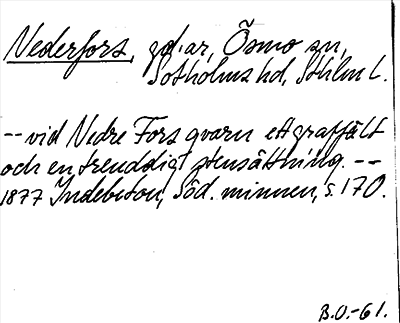 Nederfors, gd.ar, Ösmo sn,
Sotholms hd, Sthlm l.
-- vid Nedre Fors qvarn ett graffält
och en treuddig stensättning. --
1877 Indebetou, Söd. minnen, s. 170.
B.O.-61.